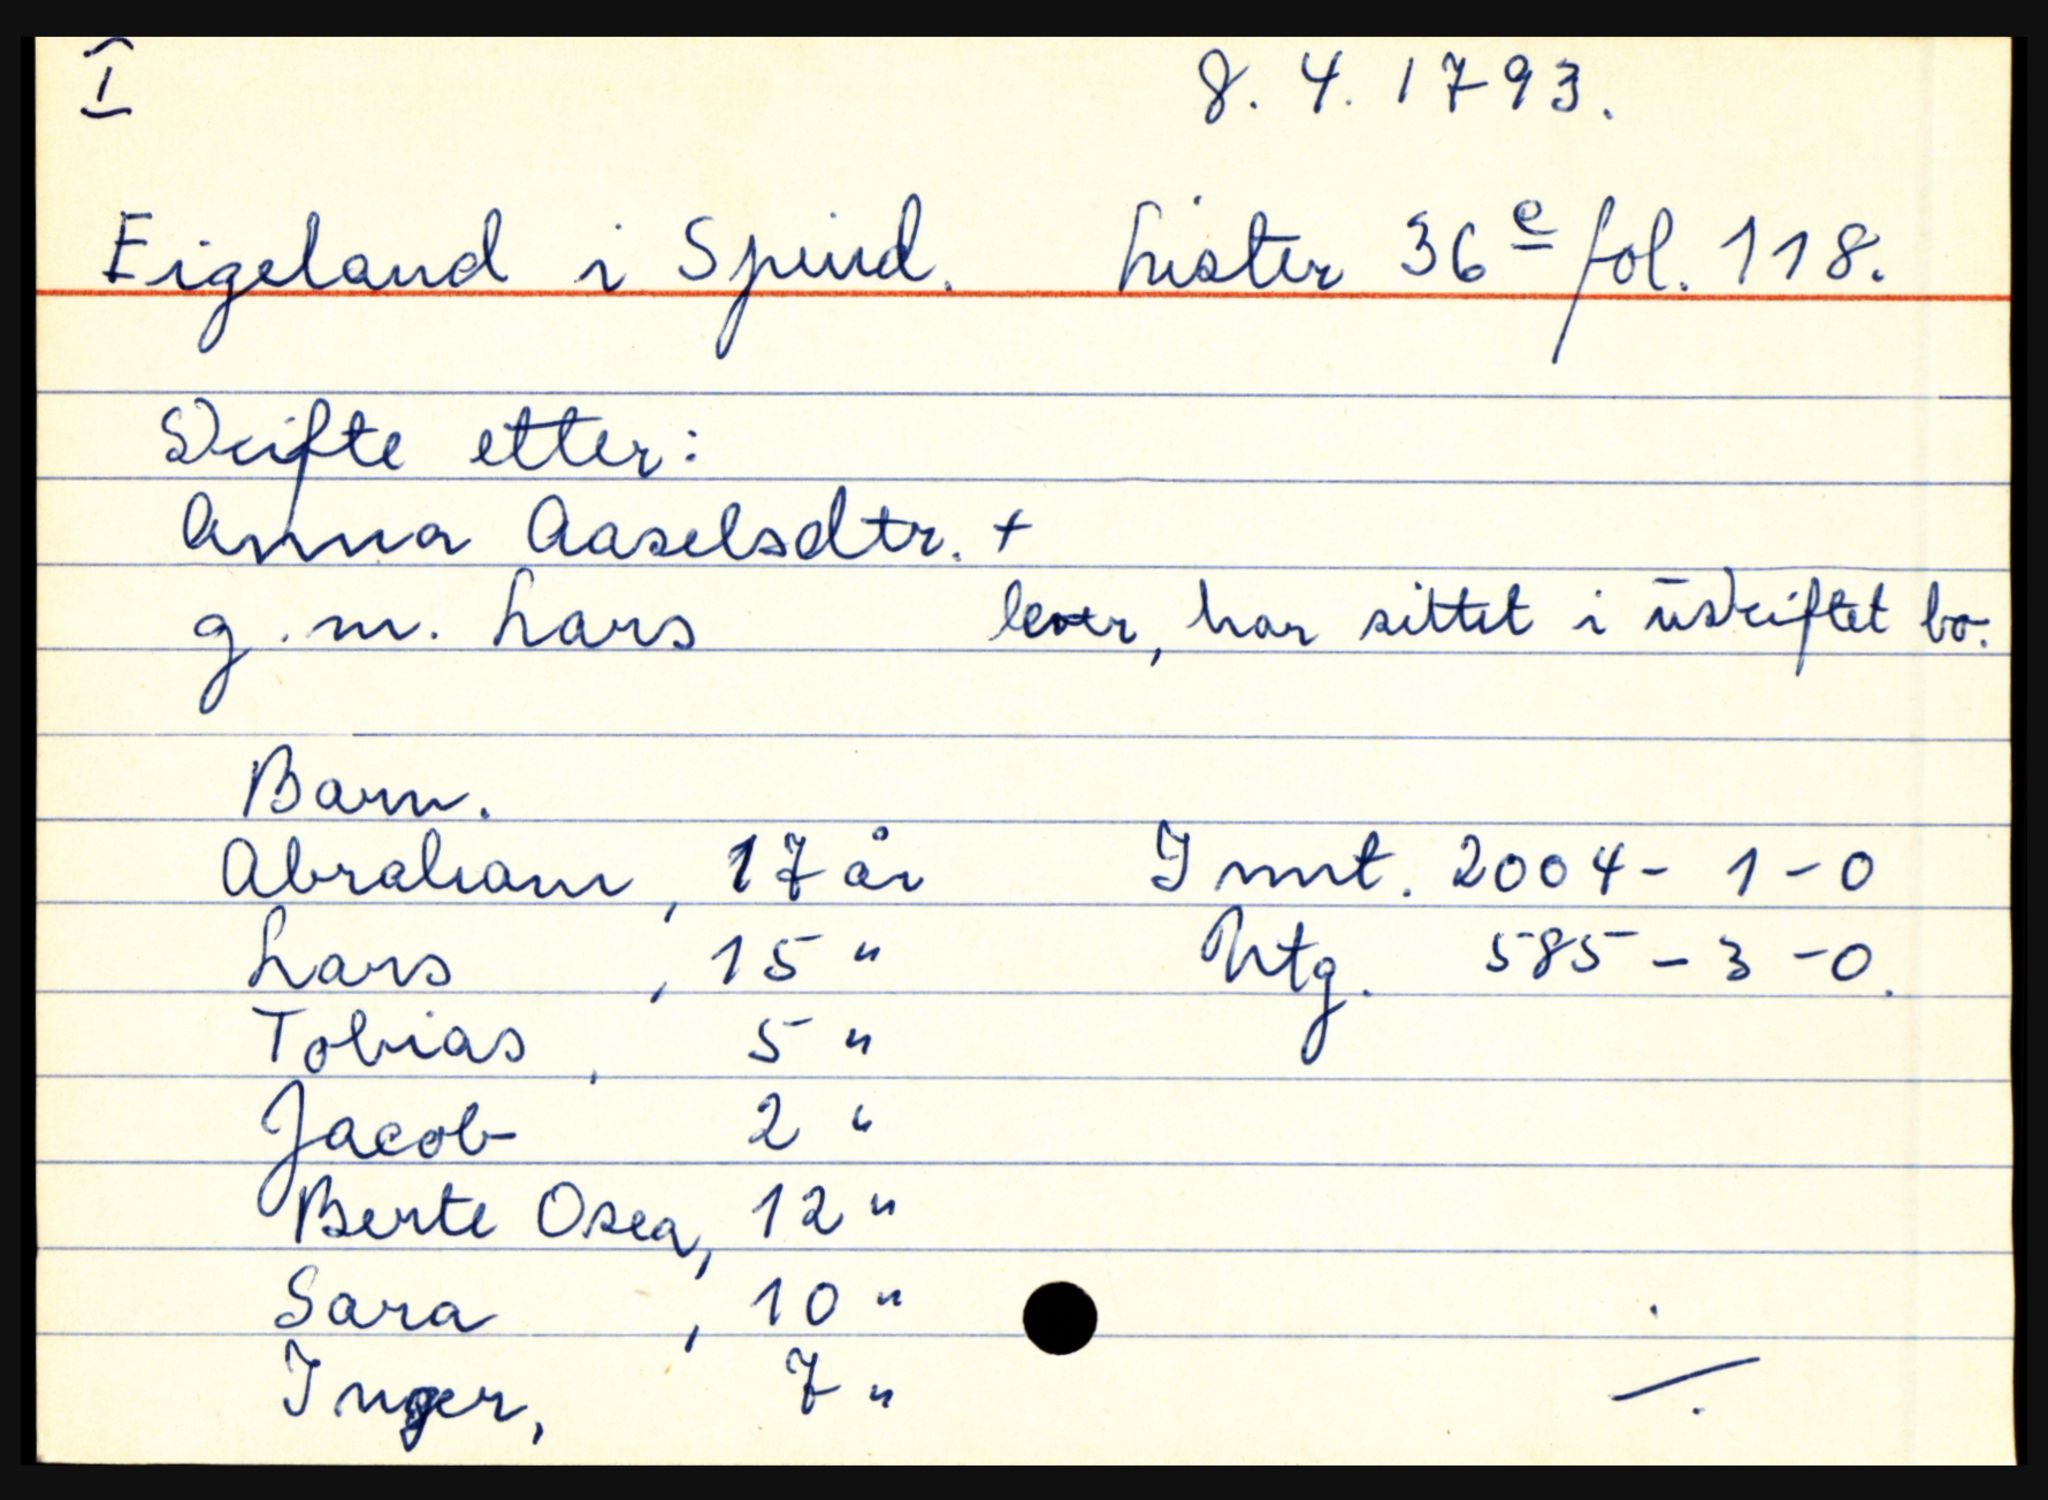 I 8.4.1793.
Eigeland i Spind. Lister 36 e fol. 118.
Skifte etter:
Anna Aaselsdtr. +
g.m. Lars lever, har sittet i uskiftet bo.
Barn.
Abraham, 17 år Innt. 2004 - 1 - 0
Lars, 15 " Utg. 585 - 3 - 0.
Tobias, 5 "
Jacob 2 "
Berte Osea, 12 "
Sara, 10 "
Inger, 7 " ./.